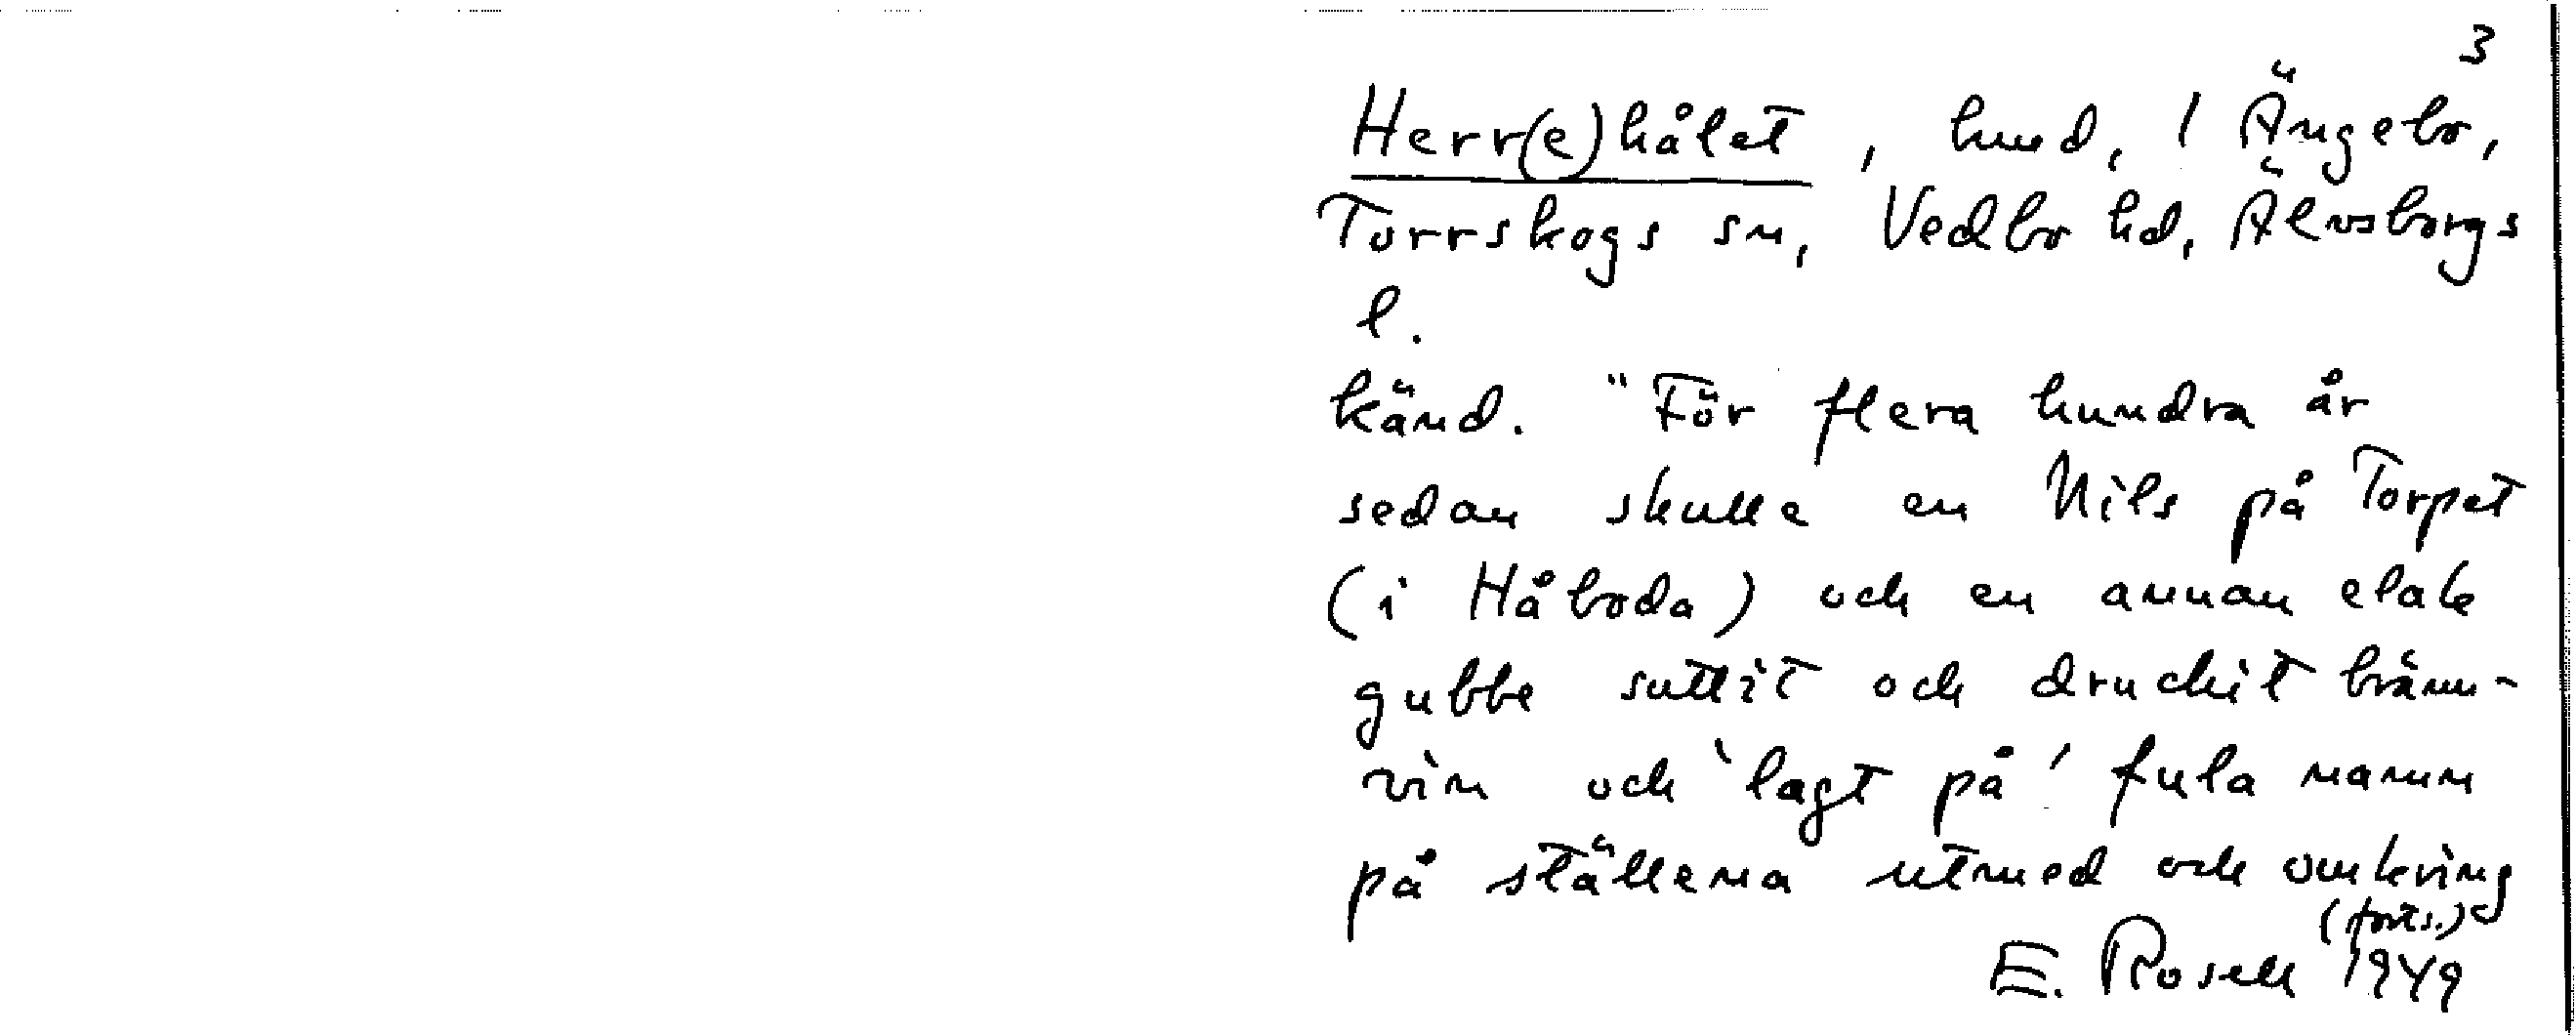 3
Herr(e)hålet, hmd, 1 Ängebo,
Torrskogs sn, Vedbo hd, Älvsborgs
l.
känd. "För flera hundra år
sedan skulle en Nils på Torpet
(i Håboda) och en annan elak
gubbe suttit och druckit bränn-
vin och 'lagt på' fula namn
på ställena utmed och omkring
(forts.)
E. Rosell 1949